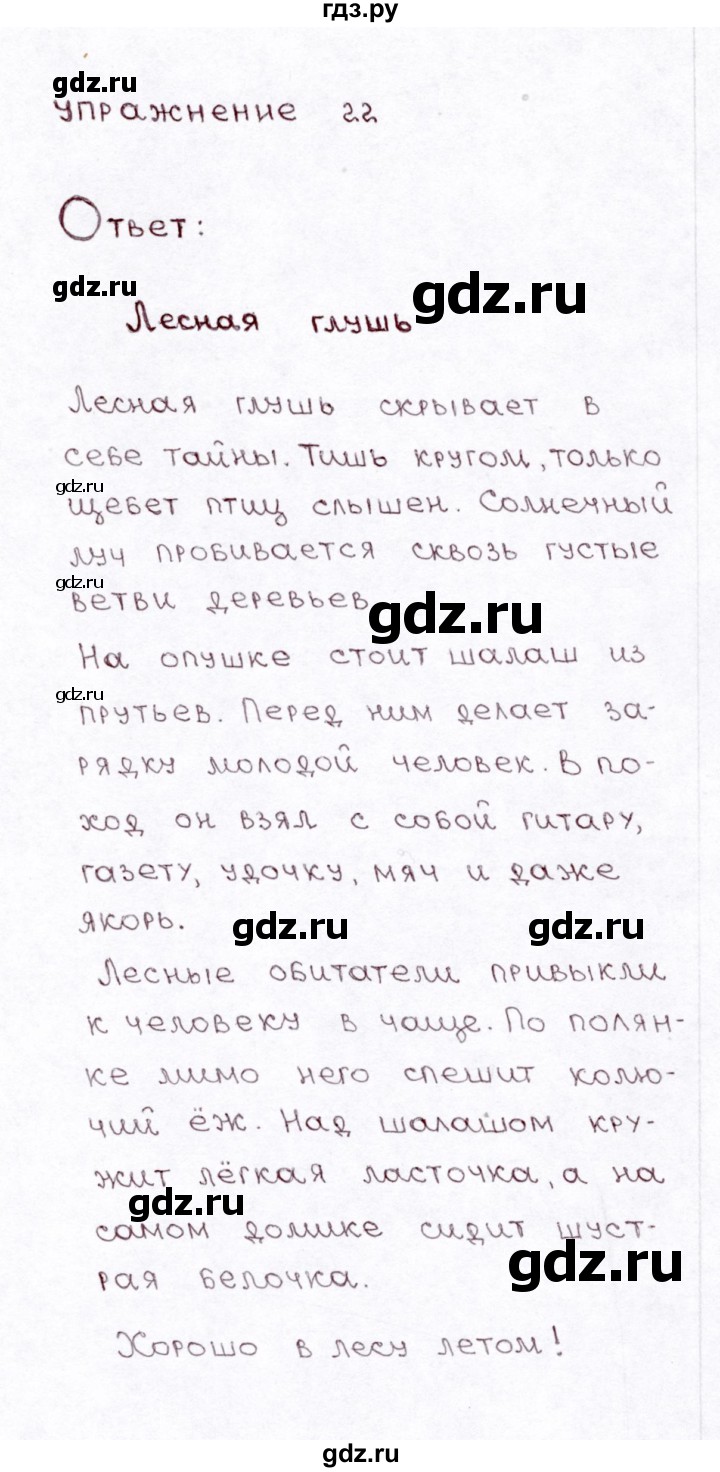 гдз.ру
gdz.ru
упражнение 22
Ответ:
gdz.ru
gdz.ru
Лесная глушь
Лесная глушь скрывает в
себе тайны. Тишь кругом, только
gdz.ru
щебет птиц слышен. Солнечный
луч пробивается сквозь густые
gdz.ru
ветви деревьев
gdz.ru
На опушке стоит шалаш из
gdz.ru
прутьев. Перед ним делает за-
рядку молодой человек. В по-
ход он взял с собой гитару,
газету, удочку, мяч и даже
якорь.
gdz.ru
gdz.ru
Лесные обитатели привыкли
к человеку в чаще. По полян-
ке мимо него спешит колю-
чий ёж. Над шалашом кру-
жит лёгкая ласточка, а на
gdz.ru
самом домике сидит шуст-
gdz.ru
рая белочка.
Хорошо в лесу летом!
gdz.ru